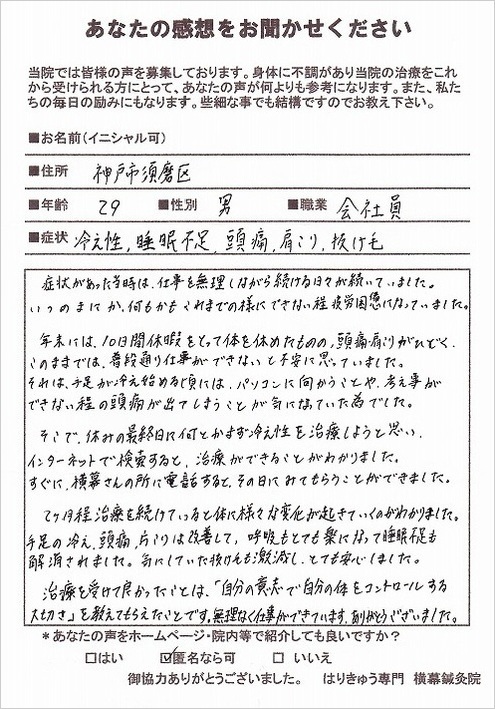 あなたの感想をお聞かせください
当院では皆様の声を募集しております。身体に不調があり当院の治療をこれ
から受けられる方にとって、あなたの声が何よりも参考になります。また、私た
ちの毎日の励みにもなります。些細な事でも結構ですのでお教え下さい。
■お名前(イニシャル可)
■住所 神戸市須磨区
■年齢 29 ■性別 男 ■職業 会社員
■症状 冷え性,睡眠不足,頭痛,肩こり,抜け毛
症状があった当時は、仕事を無理しながら続ける日々が続いていました。
いつのまにか、何もかもこれまでの様にできない程、疲労困憊になっていました。
年末には、10日間休暇をとって体を休めたものの、頭痛肩こりがひどく、
このままでは、普段通り仕事ができないと不安に思っていました。
それは、手足が冷え始める頃には、パソコンに向かうことや、考え事が
できない程の頭痛が出てしまうことが気になっていた為でした。
そこで、休みの最終日に何とかまず冷え性を治療しようと思い、
インターネットで検索すると、治療ができることがわかりました。
すぐに、横幕さんの所に電話すると、その日にみてもらうことができました。
2ヶ月程治療を続けていると体に様々な変化が起きていくのがわかりました。
手足の冷え、頭痛、肩こりは改善して、呼吸もとても楽になって睡眠不足も
解消されました。気にしていた抜け毛も激減し、とても安心しました。
治療を受けて良かったことは、「自分の意志で自分の体をコントロールする
大切さ」を教えてもらえたことです。無理なく仕事ができています。ありがとうございました。
*あなたの声をホームページ・院内等で紹介しても良いですか?
□はい ☑匿名なら可 □ いいえ
御協力ありがとうございました。 はりきゅう専門 横幕鍼灸院